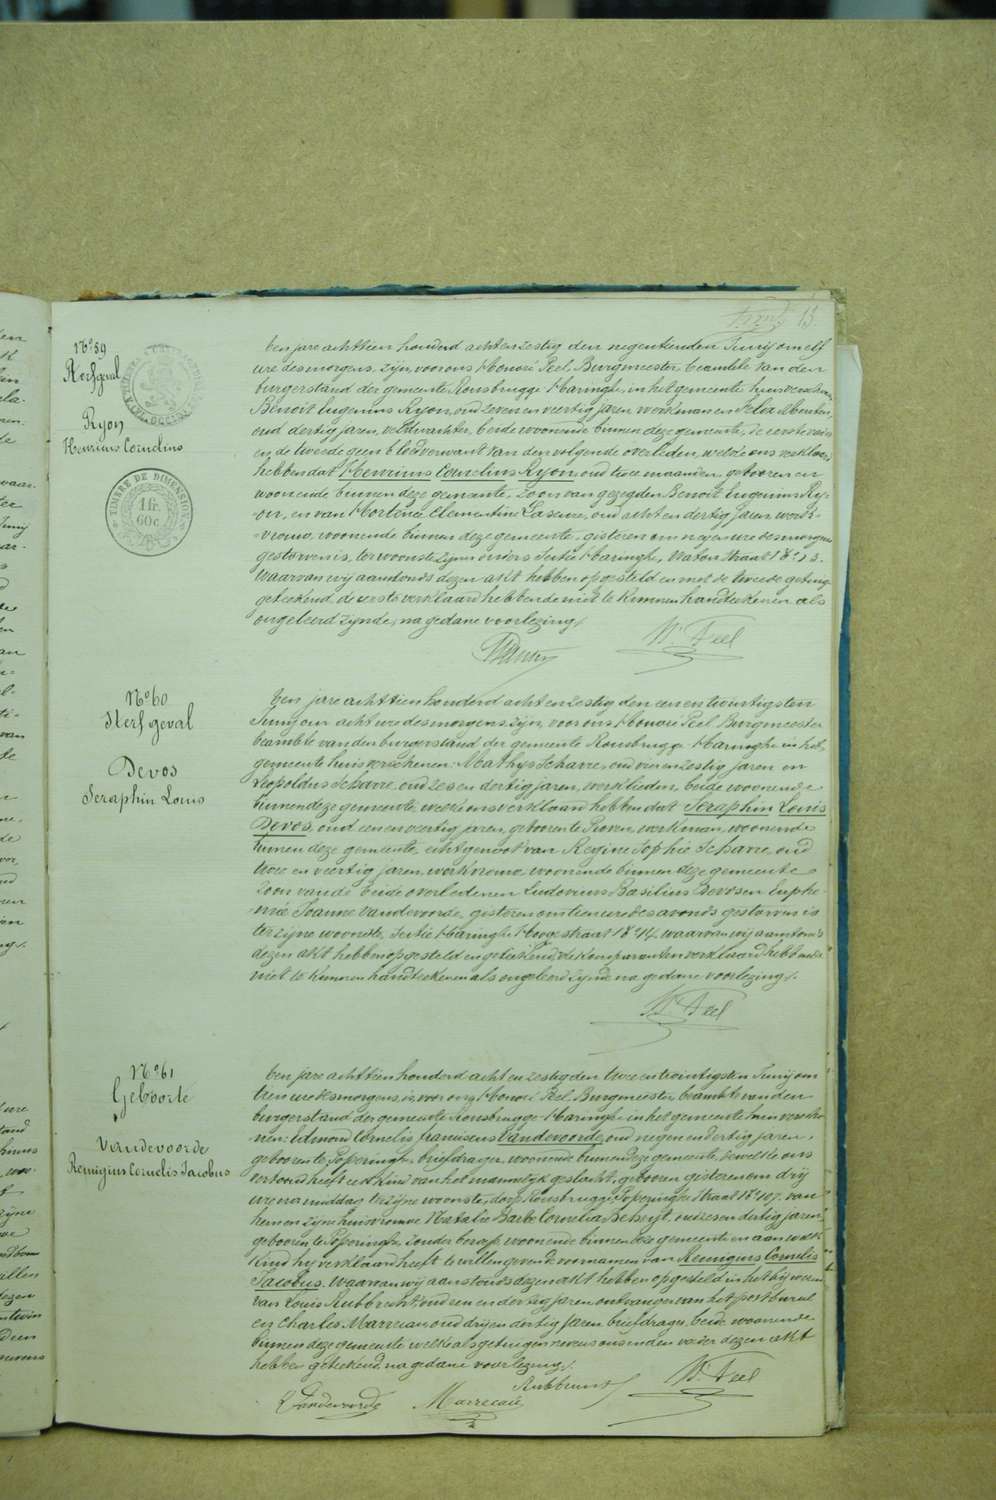 13.
N° 59
Sterfgeval
Ryon
Henricus Cornelius
TIMBRE DE DIMENSION
1 fr.
60 c.
Den jare achttien honderd acht en zestig den negentienden Junij om elf
ure des morgens, zijn voor ons Honoré Peel Burgmeester beambte van den
burgerstand der gemeente Rousbrugge-Haringhe, in het gemeente huis verschenen
Benoit Eugenius Ryon, oud zeven en veertig jaren, werkman en Felix
oud dertig jaren, veldwachter, beide woonende binnen deze gemeente, de eerste vader
en de tweede geen bloedverwant van den volgende overleden, welke ons verklaard
hebben dat Henricus Cornelius Ryon, oud twee maanden, geboren en
woonende binnen deze gemeente, zoon van gezegden Benoit Eugenius Ry-
on, en van Hortence Clementine, oud acht en dertig jaren, werk-
vrouw, woonende binnen deze gemeente, gisteren om negen ure des morgens
gestorven is, ter woonste zijner ouders Sectie Haringhe, straat N° 23.
Waarvan wij aanstonds dezen akt hebben opgesteld en met de tweede getuige
geteekend, de eerste verklaard hebbende niet te kunnen handteekenen als
ongeleerd zijnde, na gedane voorlezing.
H. Peel
N° 60
Sterfgeval
Devos
Seraphin Louis
Den jare achttien honderd acht en zestig den een en twintigsten
Junij om acht ure des morgens, zijn voor ons Honoré Peel Burgmeester
beambte van den burgerstand der gemeente Rousbrugge Haringhe in het
gemeente huis verschenen: Mathys Scharre, oud vier en zestig jaren en
Leopoldus Scharre, oud zes en dertig jaren, werklieden, beide woonende
binnen deze gemeente, welke ons verklaard hebben dat Seraphin Louis
Devos, oud een en veertig jaren, geboren te Proven, werkman, woonende
binnen deze gemeente, echtgenoot van Regine Sophie Scharre, oud
twee en veertig jaren, werkvrouw, woonende binnen deze gemeente
zoon van de beide overledenen Ludovicus Basilius Devos en Euphe-
mie Joanne Vandevoorde, gisteren om tien ure des avonds gestorven is
ter zijne woonste, Sectie Haringhe Hooge straat N° 14. waarvan wij aanstonds
dezen akt hebben opgesteld en geteekend, de komparanten verklaard hebbende
niet te kunnen handteekenen als ongeleerd zijnde na gedane voorlezing.
H. Peel
N° 61
Geboorte
Vandevoorde
Remigius Cornelis Jacobus
Den jare achttien honderd acht en zestig den twee en twintigsten Junij om
tien ure des morgens, is voor ons Honoré Peel Burgmeester beambte van den
burgerstand der gemeente Rousbrugge-Haringhe in het gemeente huis versche-
nen: Edmond Cornelis Franciscus Vandevoorde, oud negen en dertig jaren,
geboren te Poperinghe, briefdrager, woonende binnen deze gemeente, dewelke ons
vertoond heeft een kind van het mannelijk geslacht, geboren gisteren om drij
ure na middag ter zijne woonste, dorp Rousbrugge, Poperinghe straat N° 107. van
hem en zijne huisvrouw Natalie Barbe Cornelia Beheyt, oud zes en dertig jaren,
geboren te Poperinghe, zonder beroep, woonende binnen deze gemeente en aan welk
kind hij verklaard heeft te willen geven de voornamen van Remigius Cornelis
Jacobus. Waarvan wij aanstonds dezen akt hebben opgesteld in het bij wezen
van Louis Rubbrecht, oud een en dertig jaren ontvanger van het postbureel
en Charles Marrecau oud drij en dertig jaren briefdrager, beide woonende
binnen deze gemeente welke als getuigen nevens ons en den vader dezen akt
hebben geteekend, na gedane voorlezing.
H. Peel
Vandevoorde Marrecau